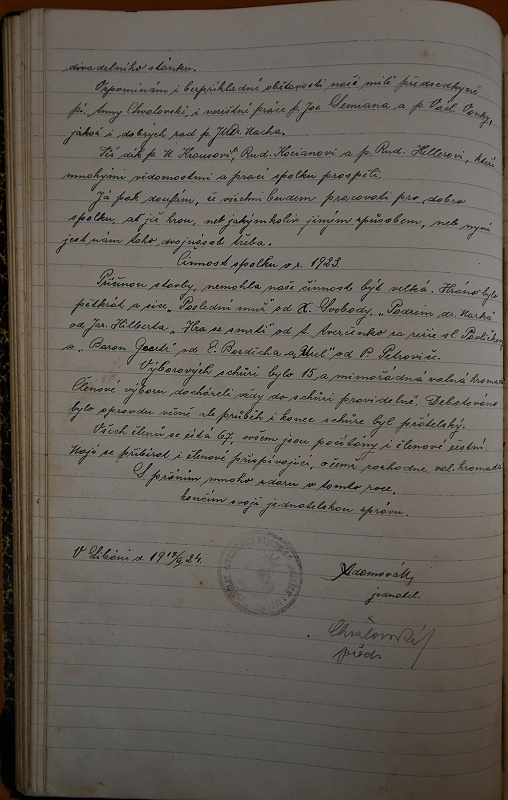 divadelního stánku.
Vzpomínám i bezpříkladné obětavosti naší milé předsedkyně
pí. Anny Chvalovské i nezištné práce p. Jos. Semiana a p. Vád.
jakož i dobrých rad p. JUDr. Macha.
Též dík p. H. Krausovi, Rud. Kocianovi a p. Rud. Hellerovi, kteří
mnohými vědomostmi a prací spolku prospěli.
Já pak doufám, že všichni budem pracovati pro dobro
spolku, ať již hrou, neb jakýmkoliv jiným způsobem, neb nyní
jest nám toho dvojnásob třeba.
Činnost spolku v r. 1923.
Příčinou stavby, nemohla naše činnost býti velká. Hráno bylo
pětkrát a sice „Poslední muž" od X. Svobody, „Podzim dr. Marka"
od Jar. Hilberta „Hra se smrtí" od A. Averčenko za režie sl. Pavlíčkovy
a „Baron Goertz" od E. Bozděcha a „Uzel" od P. Petroviče.
Výborových schůzí bylo 15 a mimořádná valná hromada
Členové výboru docházeli vždy do schůzí pravidelně. Debatováno
bylo opravdu věcně ale průběh i konec schůze byl přátelský.
Všech členů se čítá 67, ovšem jsou počítány i členové čestní.
Mají se přibírat i členové přispívající, o čemž rozhodne val. hromada
S přáním mnoho zdaru v tomto roce,
končím svoji jednatelskou zprávu.
V Libáni d. 19 24.
Adamovák
jednatel.
Chvalovská
předs